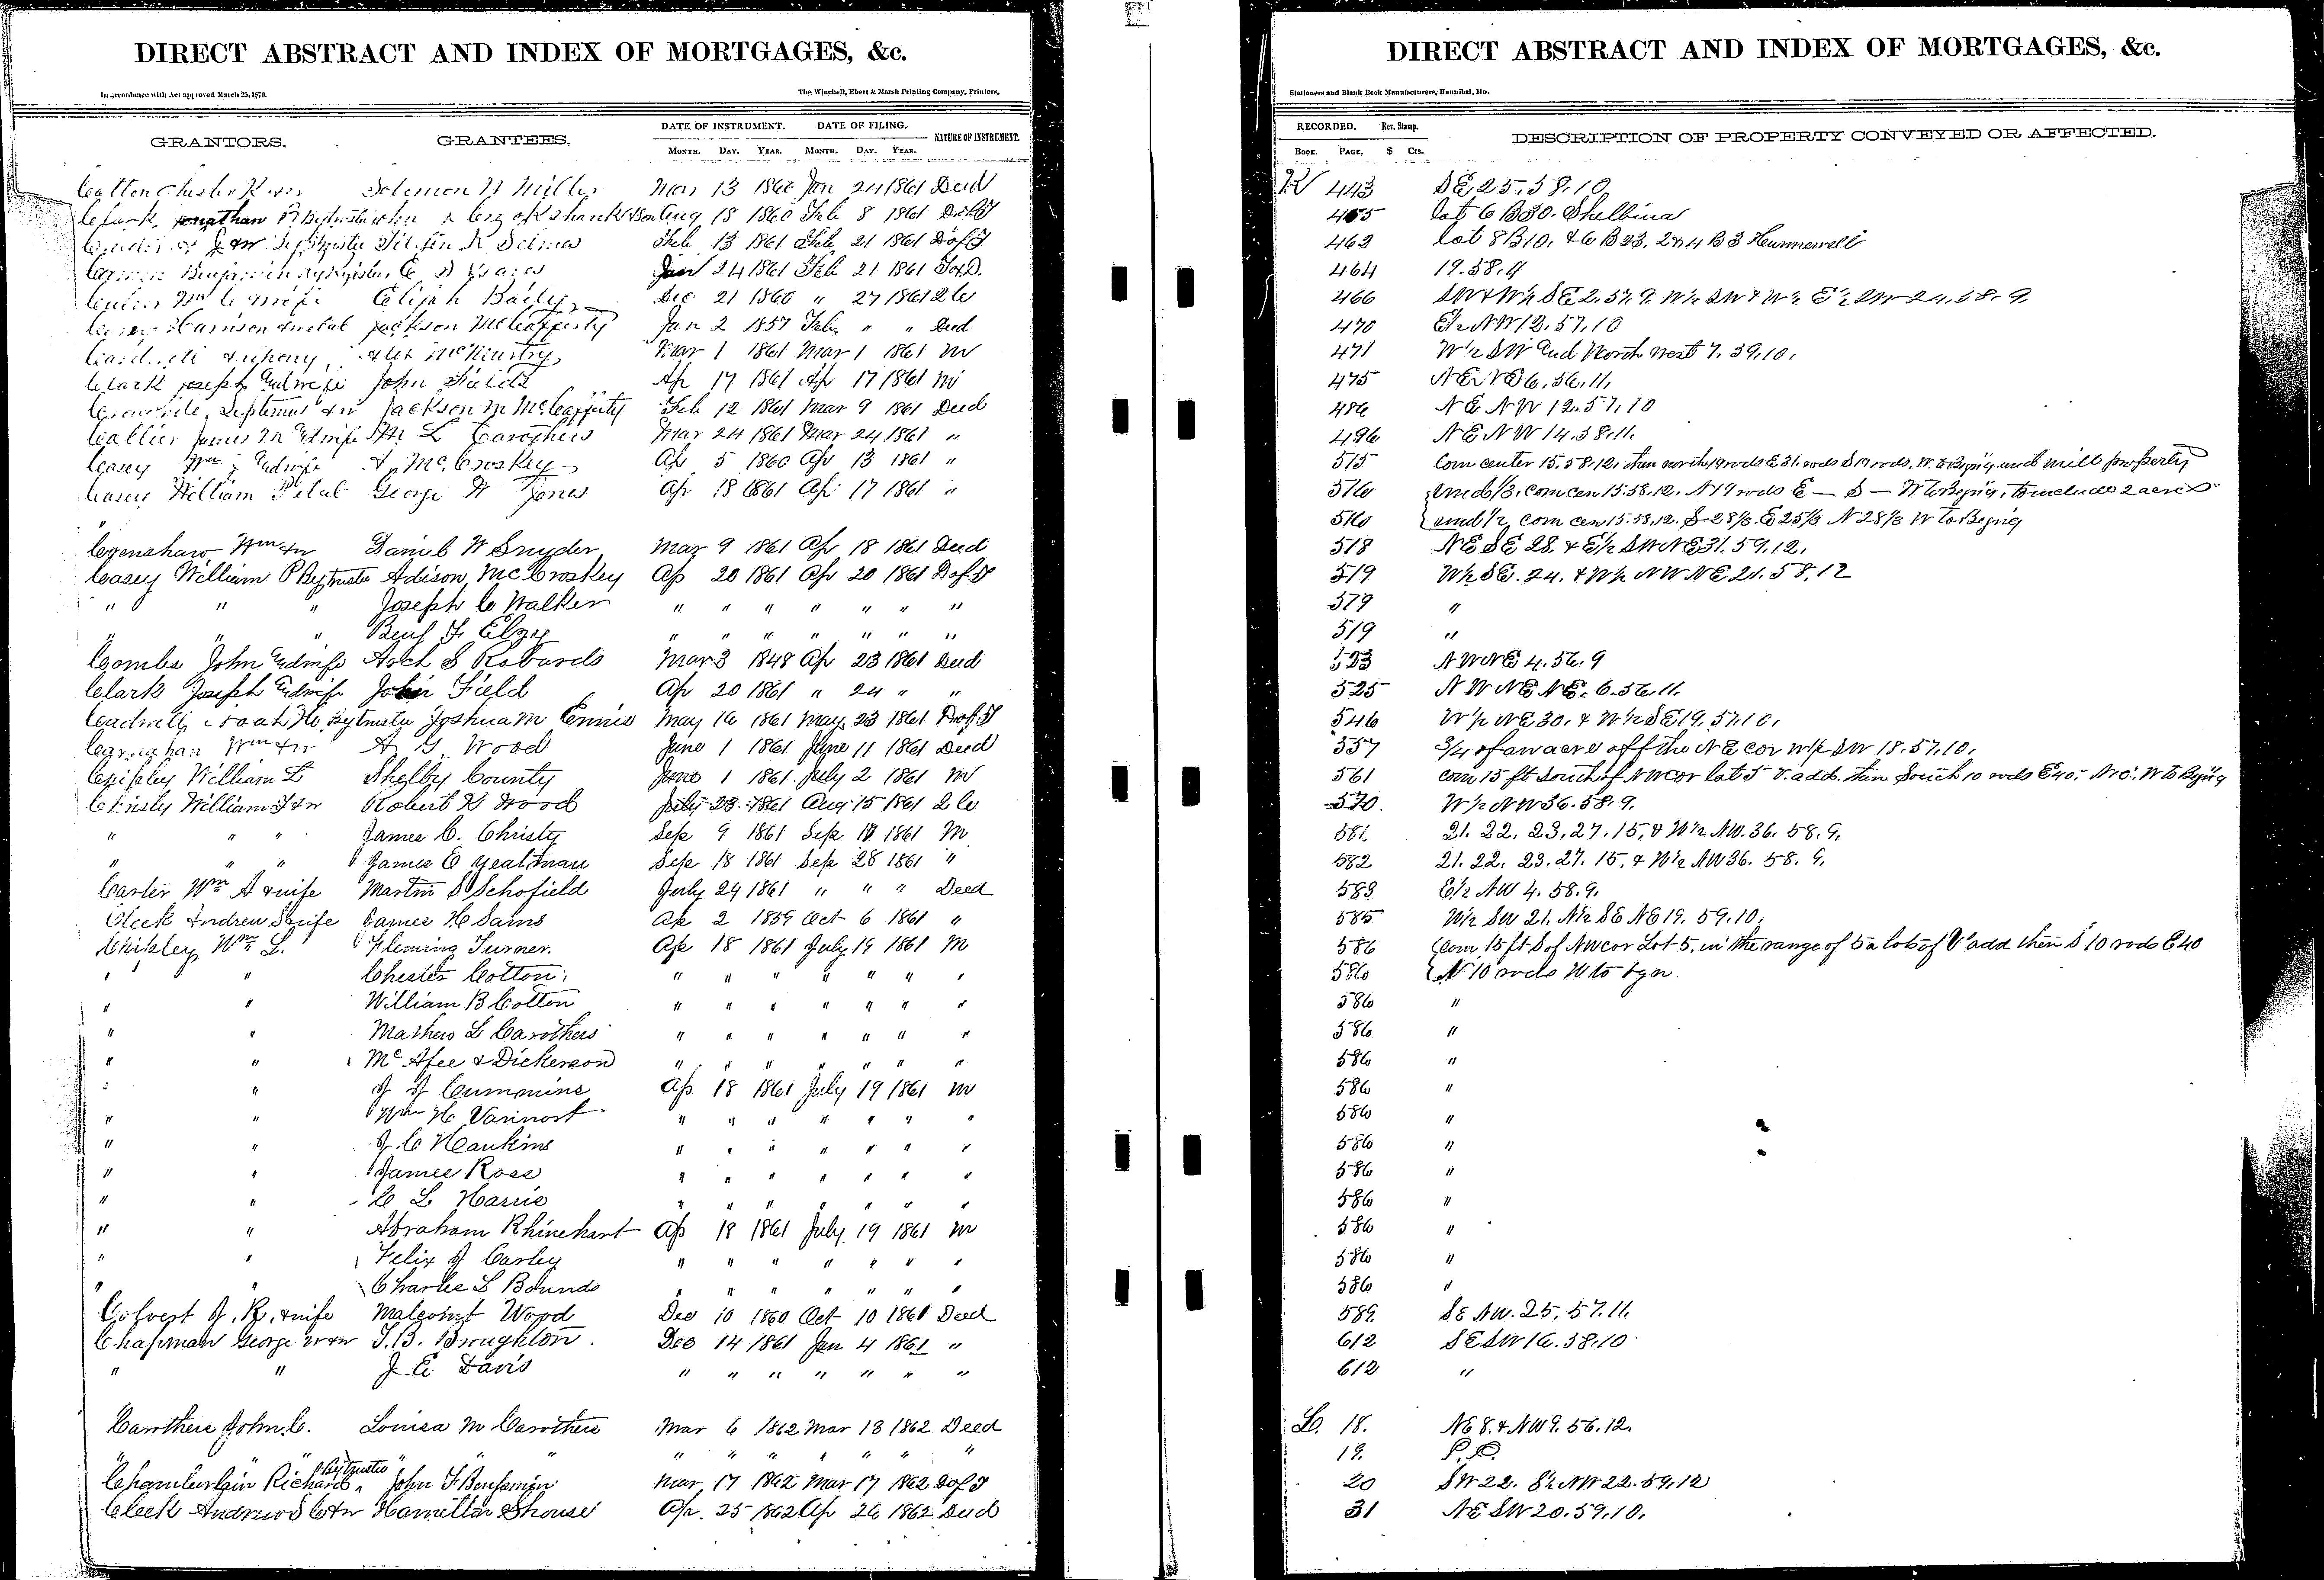 DIRECT ABSTRACT AND INDEX OF MORTGAGES, &c.
In accordance with Act approved March 25, 1870. The Winchell, Ebert & Marsh Printing Company, Printers,
GRANTORS. GRANTEES. DATE OF INSTRUMENT. DATE OF FILING. NATURE OF INSTRUMENT.
MONTH. DAY. YEAR. MONTH. DAY. YEAR.
Solomon W Miller Mar 13 1860 Jan 24 1861 Deed
Clark Jonathan R By trustee Aug 18 1860 Feb 8 1861 D of T
Feb 13 1861 Feb 21 1861 D of T
Benjamin Jan 24 1861 Feb 21 1861
Elijah Baily Dec 21 1860 " 27 1861 2 C
Harrison Jackson McCafferty Jan 2 1857 Feb " " Deed
Mar 1 1861 Mar 1 1861 M
Clark Joseph and wife John Field Ap 17 1861 Ap 17 1861 M
Septimus & W Jackson M McCafferty Feb 12 1861 Mar 9 1861 Deed
James M and wife L Carothers Mar 24 1861 Mar 24 1861 "
Casey Wm and wife A McCroskey Ap 5 1860 Ap 13 1861 "
Casey William P et al George W Jones Ap 18 1861 Ap 17 1861 "
"
Crenshaw Wm & W Daniel W Snyder Mar 9 1861 Ap 18 1861 Deed
Casey William P By trustee Adison McCroskey Ap 20 1861 Ap 20 1861 D of T
" " " Joseph C Walker " " " " " " "
" " " Benj F Elzy " " " " " " "
Combs John and wife Arch S Robards Mar 3 1848 Ap 23 1861 Deed
Clark Joseph and wife John Field Ap 20 1861 " 24 " "
By trustee Joshua M Ennis May 16 1861 May 23 1861 D of T
Wm & W A G Wood June 1 1861 June 11 1861 Deed
William L Shelby County June 1 1861 July 2 1861 M
Christy William J & W Robert K Wood July 23 1861 Aug 15 1861 2 C
" " " James C. Christy Sep 9 1861 Sep 1861 M
" " " James E Yealtman Sep 18 1861 Sep 28 1861 "
Carter Wm A & wife Martin S Schofield July 29 1861 " " " Deed
Cleek Andrew S wife James H Sams Ap 2 1859 Oct 6 1861 "
Chipley Wm L. Fleming Turner. Ap 18 1861 July 19 1861 M
" " Chester Cotton " " " " " " "
" " William B Cotton " " " " " " "
" " Mathew L Carothers " " " " " " "
" " Mc Afee & Dickerson " " " " " " "
" " J J Cummins Ap 18 1861 July 19 1861 M
" " Wm H Vannort " " " " " " "
" " J. C Hankins " " " " " " "
" " James Ross " " " " " " "
" " C L Harris " " " " " " "
" " Abraham Rhinehart Ap 18 1861 July 19 1861 M
" " Felix J Carley " " " " " " "
" " Charles L Bounds " " " " " " "
Colvert J. R. & wife Malcomb Wood Dec 10 1860 Oct 10 1861 Deed
Chapman George W & W T. B. Broughton. Dec 14 1861 Jan 4 1861 "
" " J. E Davis " " " " " " "
Carothers John C. Louisa M Carothers Mar 6 1862 Mar 13 1862 Deed
" " " " " " " " " " "
Chamberlain Richard By trustee John F Benjamin Mar 17 1862 Mar 17 1862 D of T
Cleek Andrew S C & W Hamilton Shouse Ap. 25 1862 Ap 26 1862 Deed
DIRECT ABSTRACT AND INDEX OF MORTGAGES, &c.
Stationers and Blank Book Manufacturers, Hannibal, Mo.
RECORDED. Rev. Stamp. DESCRIPTION OF PROPERTY CONVEYED OR AFFECTED.
BOOK. PAGE. $ Cts.
K 443 SE 25. 58. 10
455 Lot 6 B 30. Shelbina
462 Lot 8 B 10, & 6 B 23, 2 & 4 B 3 Hunnewell
464 19. 58. 9
466 SW & W½ SE 2. 57. 9. W½ SW & W½ E½ SW 24. 58. 9.
470 E½ NW 12. 57. 10
471 W½ SW and North West 7. 59. 10.
475 NE NE 6. 56. 11.
486 NE NW 12. 57. 10
496 NE NW 14. 58. 11.
515 Com center 15. 58. 12. then north 19 rods E 31. rods S 19 rods. W. to Begn'g and mill property
516 und ⅓. com cen 15. 58. 12. N 19 rods E — S — W to Begn'g, to include 2 acres
516 und ½ com cen 15. 58. 12. S 28⅓. E 25⅓ N 28⅓ W to Begn'g
518 NE SE 28. & E½ SW NE 31. 59. 12.
519 W½ SE. 24. & W½ NW NE 21. 58. 12
519 "
519 "
523 NW NE 4. 56. 9
525 NW NE NE. 6. 56. 11.
546 W½ NE 30. & W½ SE 19. 57. 10.
557 3/4 of an acre off the NE cor W½ SW 18. 57. 10.
561 com 15 ft South of NW cor lot 5 V. add. then South 10 rods E 40. N 10. W to Begn'g
570. W½ NW 36. 58. 9.
581. 21. 22. 23. 27. 15. & W½ NW. 36. 58. 9.
582 21. 22. 23. 27. 15. & W½ NW 36. 58. 9.
583 E½ NW 4. 58. 9.
585 W½ SW 21. N½ SE NE 19. 59. 10.
586 Com 15 ft S of NW cor Lot 5. in the range of 5 a lots of V add then S 10 rods E 40
586 N 10 rods W to bgn.
586 "
586 "
586 "
586 "
586 "
586 "
586 "
586 "
586 "
586 "
586 "
589. SE NW. 25. 57. 11.
612 SE SW 16. 58. 10
612 "
L. 18. NE 8. & NW 9. 56. 12.
19. P. P.
20 SW 22. S½ NW 22. 59. 12
31 NE SW 20. 59. 10.